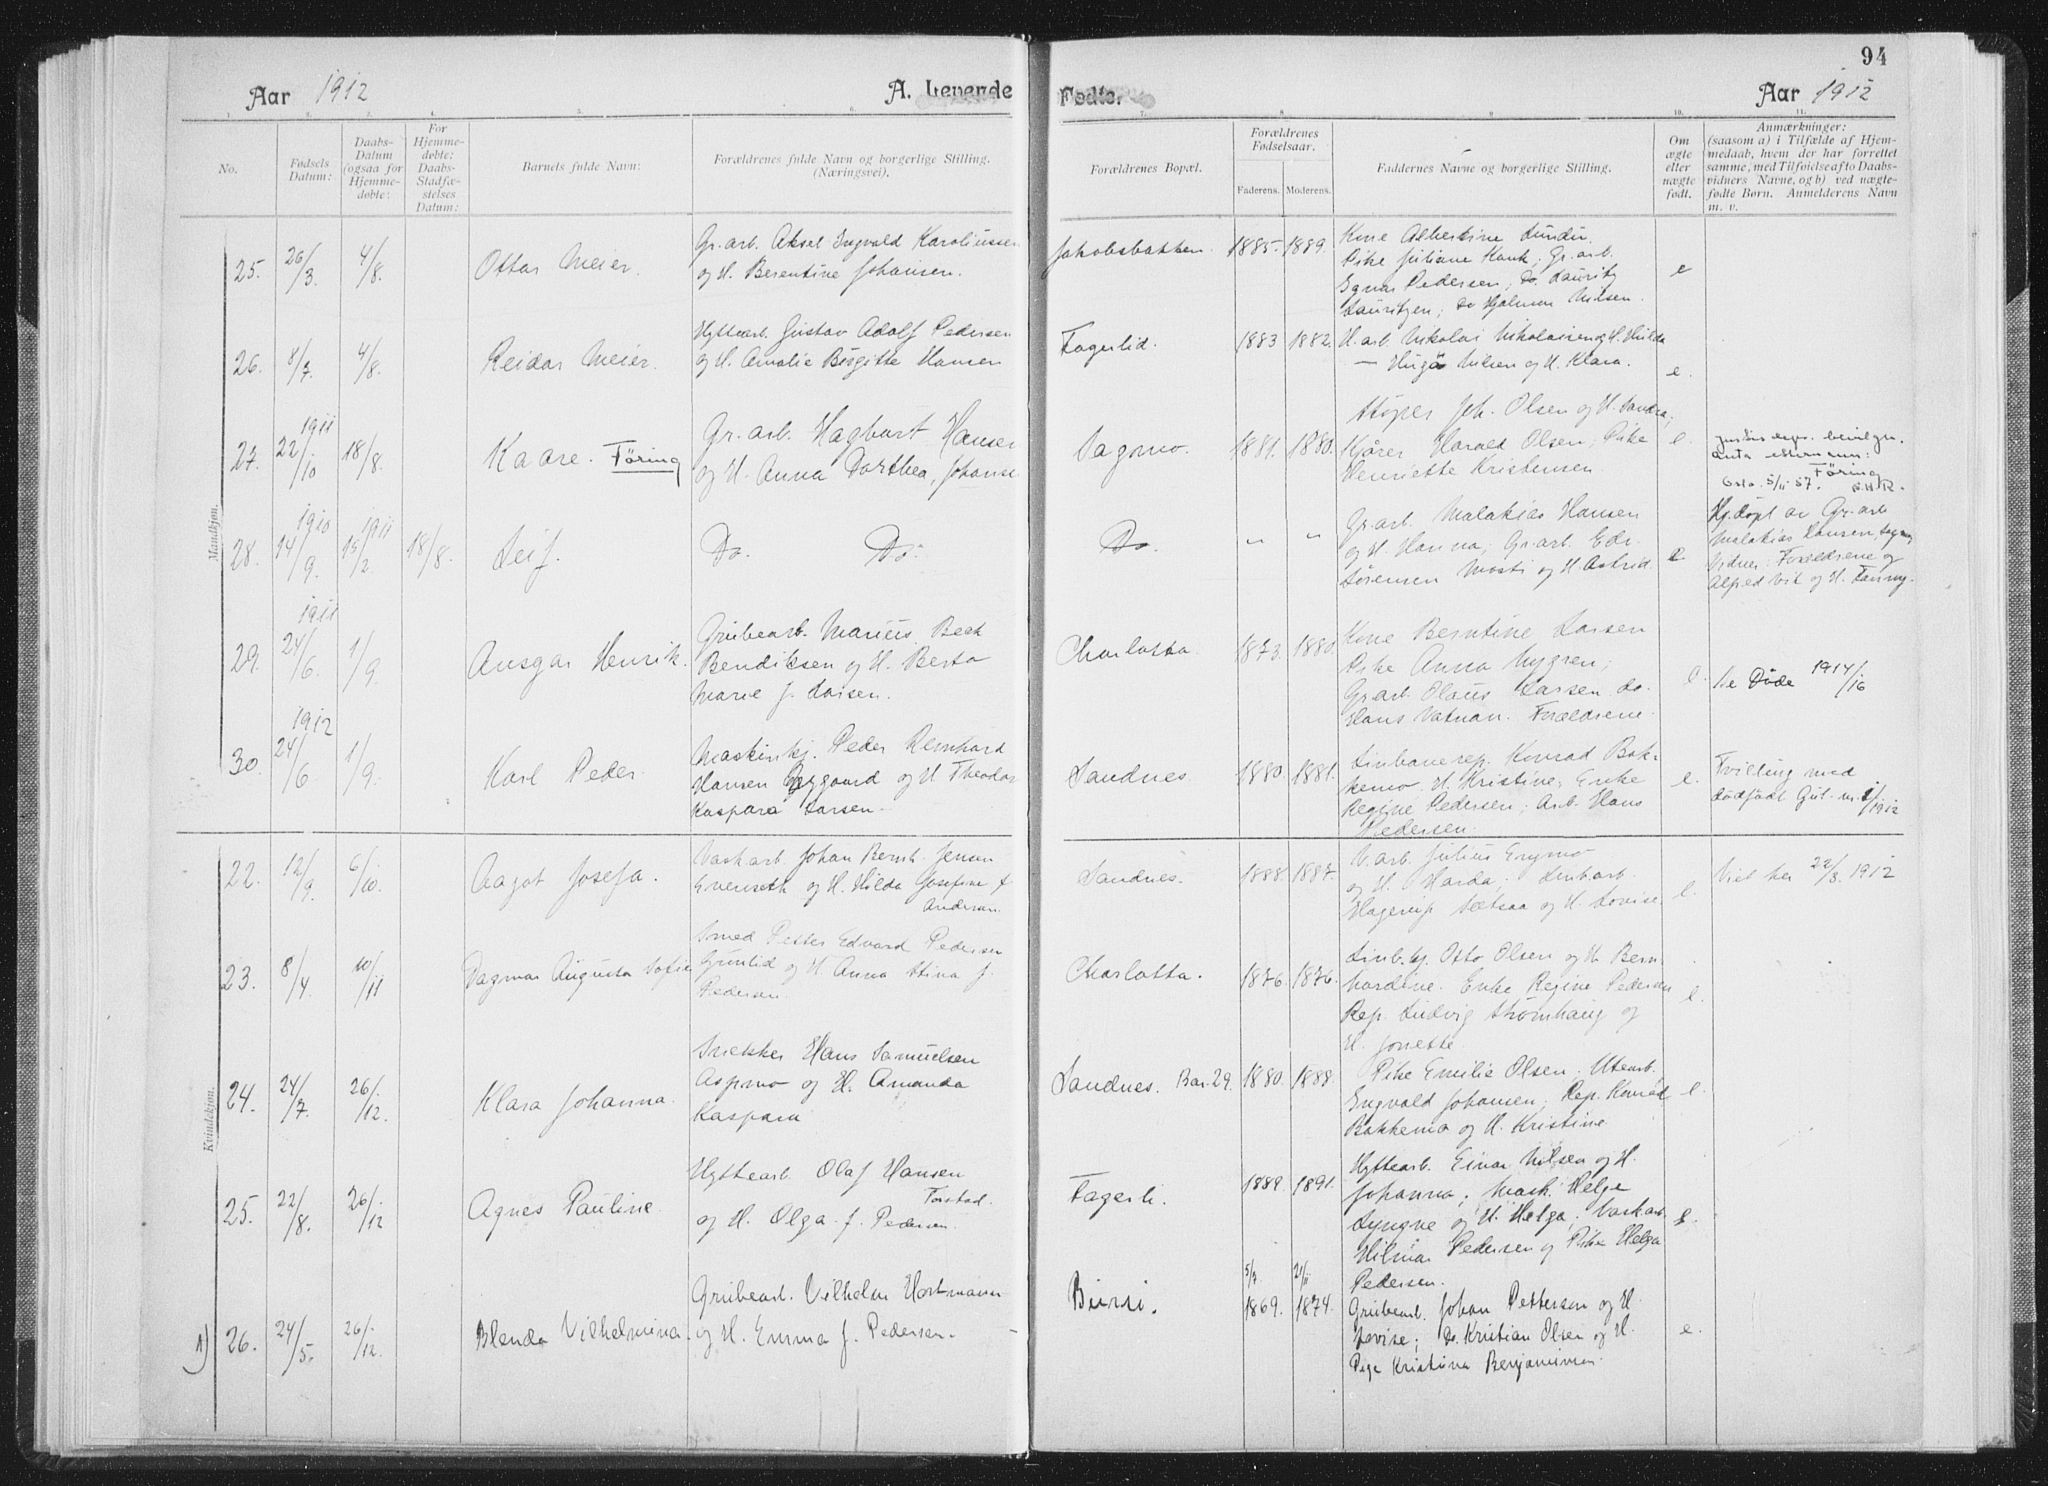 94
Aar 1912
A. Levende
Fødte.
Aar 1912
1.
2.
3.
4.
5.
6.
7.
8.
9.
10.
11.
No.
Fødsels
Datum:
Daabs-
Datum
(ogsaa for
Hjemme-
døbte:
For
Hjemme-
døbte:
Daabs-
Stadfæ-
stelses
Datum:
Barnets fulde Navn:
Forældrenes fulde Navn og borgerlige Stilling.
(Næringsvei).
Forældrenes Bopæl.
Forældrenes
Fødselsaar.
Faderens.
Moderens.
Faddernes Navne og borgerlige Stilling.
Om
ægte
eller
uægte
født.
Anmærkninger:
(saasom a) i Tilfælde af Hjem-
medaab, hvem der har forrettet
samme, med Tilføielse af to Daabs-
vidners Navne, og b) ved uægte-
fødte Børn. Anmelderens Navn
m. v.
Mandkjøn.
25. 26/3. 4/8. Ottar Meier.
Gr.arb. Aksel Ingvald Karoliussen
og H. Berentine Johansen.
Jakobsbakken. 1885. 1889.
Kone Albertine Lundli.
Pike Juliane Hank; Gr.arb.
Egnar Pedersen; Do. Lauritz
Lauritzen; Do Hjalmar Nilsen.
e
26. 8/7. 4/8. Reidar Meier.
Hyttearb. Gustav Adolf Pedersen
og H. Amalie Birgitte Hansen
Fagerlid. 1883 1882.
H.arb. Nikolai Nikolaisen og H. Hilda
— Hugo Nilsen og H. Klara.
e.
27. 1911 22/10 18/8. Kaare. Föring
Gr.arb. Hagbart Hansen
og H. Anna Dorthea, Johanse
Sagmo. 1881. 1880.
Støper Joh. Olsen og H. Sandra;
Kjører Harald Olsen; Pike
Henriette Kristensen
e.
Justisdep. bevilgn.
anta etternavn:
Föring
Oslo. 5/11 57.
28. 1910 14/9. 1911 15/2. 18/8. Leif.
Do. Do.
Do. " "
Gr.arb. Malakias Hansen
og H. Hanna; Gr.arb. Edv.
Sørensen Mosti og H. Astrid.
e
Hj.döpt av Gr.arb
Malakias Hansen Sagmo
Vidner: Forældrene og
Alfred Vik og H. Fanny.
29. 1911 24/6. 1/9. Ansgar Henrik.
Grubearb. Marius Beck
Bendiksen og H. Berta
Marie f. Larsen.
Charlotta. 1873. 1880.
Kone Berntine Larsen
Pike Anna Nygren;
Gr.arb. Olaus Larsen. do.
Hans Vatnan. Forældrene.
e.
se Döde 1914/16
30. 1912 24/6 1/9. Karl Peder.
Maskinkj. Peder Reinhard
Hansen Nygaard og H. Theodora
Kaspara Larsen.
Sandnes 1880 1881.
Linbanerep. Konrad Bak-
kemo. H. Kristine; Enke
Regine Pedersen; Arb. Hans
Pedersen.
e.
Tvilling med
dödfödt Gut. nr. 1/1912
Kvindekjøn.
22. 12/9. 6/10. Aagot Josefa.
Vaskarb. Johan Bernh. Jensen
Evenseth og H. Hilda Josefine f.
Andersen.
Sandnes. 1888. 1887.
V.arb. Julius Engmo
og H. Harda; Linb.arb.
Hagerup Sætsaa og H. Lovise.
e.
Viet her 22/3. 1912
23. 8/4. 10/11 Dagmar Augusta Sofie
Smed Petter Edvard Pedersen
Grünlid og H. Anna Stina f.
Pedersen.
Charlotta. 1876. 1876.
Linb.kj. Otto Olsen og H. Bern-
hardine. Enke Regine Pedersen
Rep. Ludvig Strömhaug og
H. Jonette.
e.
24. 24/7. 26/12. Klara Johanna.
Snekker Hans Samuelsen
Aspmo og H. Amanda
Kaspara
Sandnes. Bar. 29. 1880. 1888.
Pike Emilie Olsen. Utearb.
Engvald Johansen; Rep. Konrad
Bakkemo og H. Kristine
e.
25. 22/8. 26/12 Agnes Pauline.
Hyttearb. Olaf Hansen
Torstad.
og H. Olga f. Pedersen.
Fagerli. 1889. 1891.
Hyttearb. Einar Nilsen og H.
Johanna; Mask. Helge
Lyngve og H. Helga; Vask.arb.
Hilmar Pedersen og Pike Helga
Pedersen.
e.
1) 26. 24/5. 26/12. Blenda Vilhelmina.
Grubearb. Vilhelm Hortmann
og H. Emma f. Pedersen.
Bursi. 5/7. 1869. 21/11 1874.
Grubearb. Johan Pettersen og H.
Lovise; Do. Kristian Olsen og H.
Pige Kristina Benjaminsen.
e.